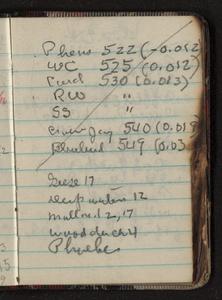 Phoeb 522 (-0.012
WC 525 (0.012)
Card 530 (0.013)
RW "
SS "
Jay 540 (0.019
Bluebird 549 (0.03
Geese 17
12
Mallard 2, 17
wood duck 4
Phoebe